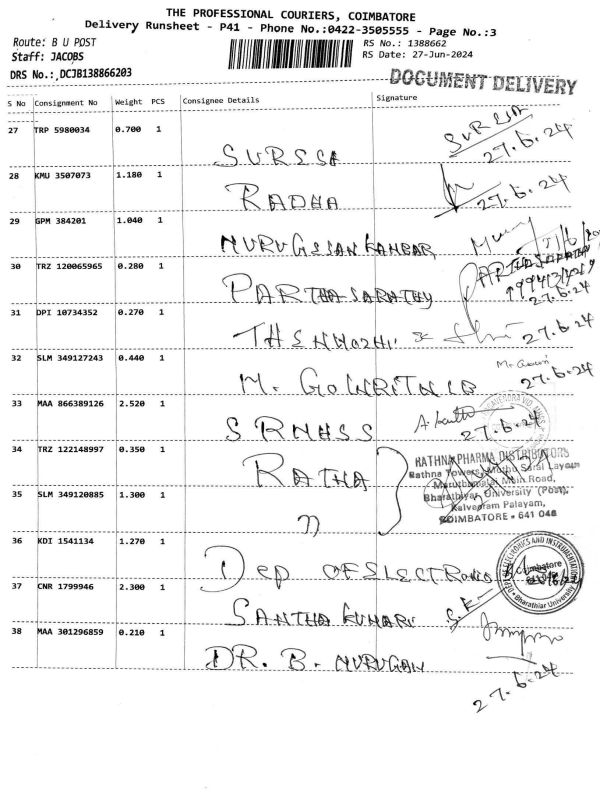 THE PROFESSIONAL COURIERS, COIMBATORE
Delivery Runsheet - P41 - Phone No.:0422-3505555 - Page No.:3
Route: B U POST
RS No.: 1388662
Staff: JACOBS
RS Date: 27-Jun-2024
DRS No.: DCJB138866203
DOCUMENT DELIVERY
S No Consignment No Weight PCS Consignee Details Signature
27 TRP 5980034 0.700 1
27.6.24
28 KMU 3507073 1.180 1
RADHA 27.6.24
29 GPM 384201 1.040 1
30 TRZ 120065965 0.280 1
PARTHASARATHY PARTHASARATHY
27.6.24
31 DPI 10734352 0.270 1
27.6.24
32 SLM 349127243 0.440 1
M. 27.6.24
33 MAA 866389126 2.520 1
27.6.24
34 TRZ 122148997 0.350 1
RATHA
RATHNA PHARMA DISTRIBUTORS
Rathna Towers, Layout
Maruthamalai Main Road,
Bharathiyar University (Post),
Kalveram Palayam,
COIMBATORE - 641 046
35 SLM 349120885 1.300 1
36 KDI 1541134 1.270 1
Dep OF
Coimbatore
Bharathiar University
37 CNR 1799946 2.300 1
SANTHA KUMARI
38 MAA 301296859 0.210 1
DR. B. MURUGAN
27.6.24